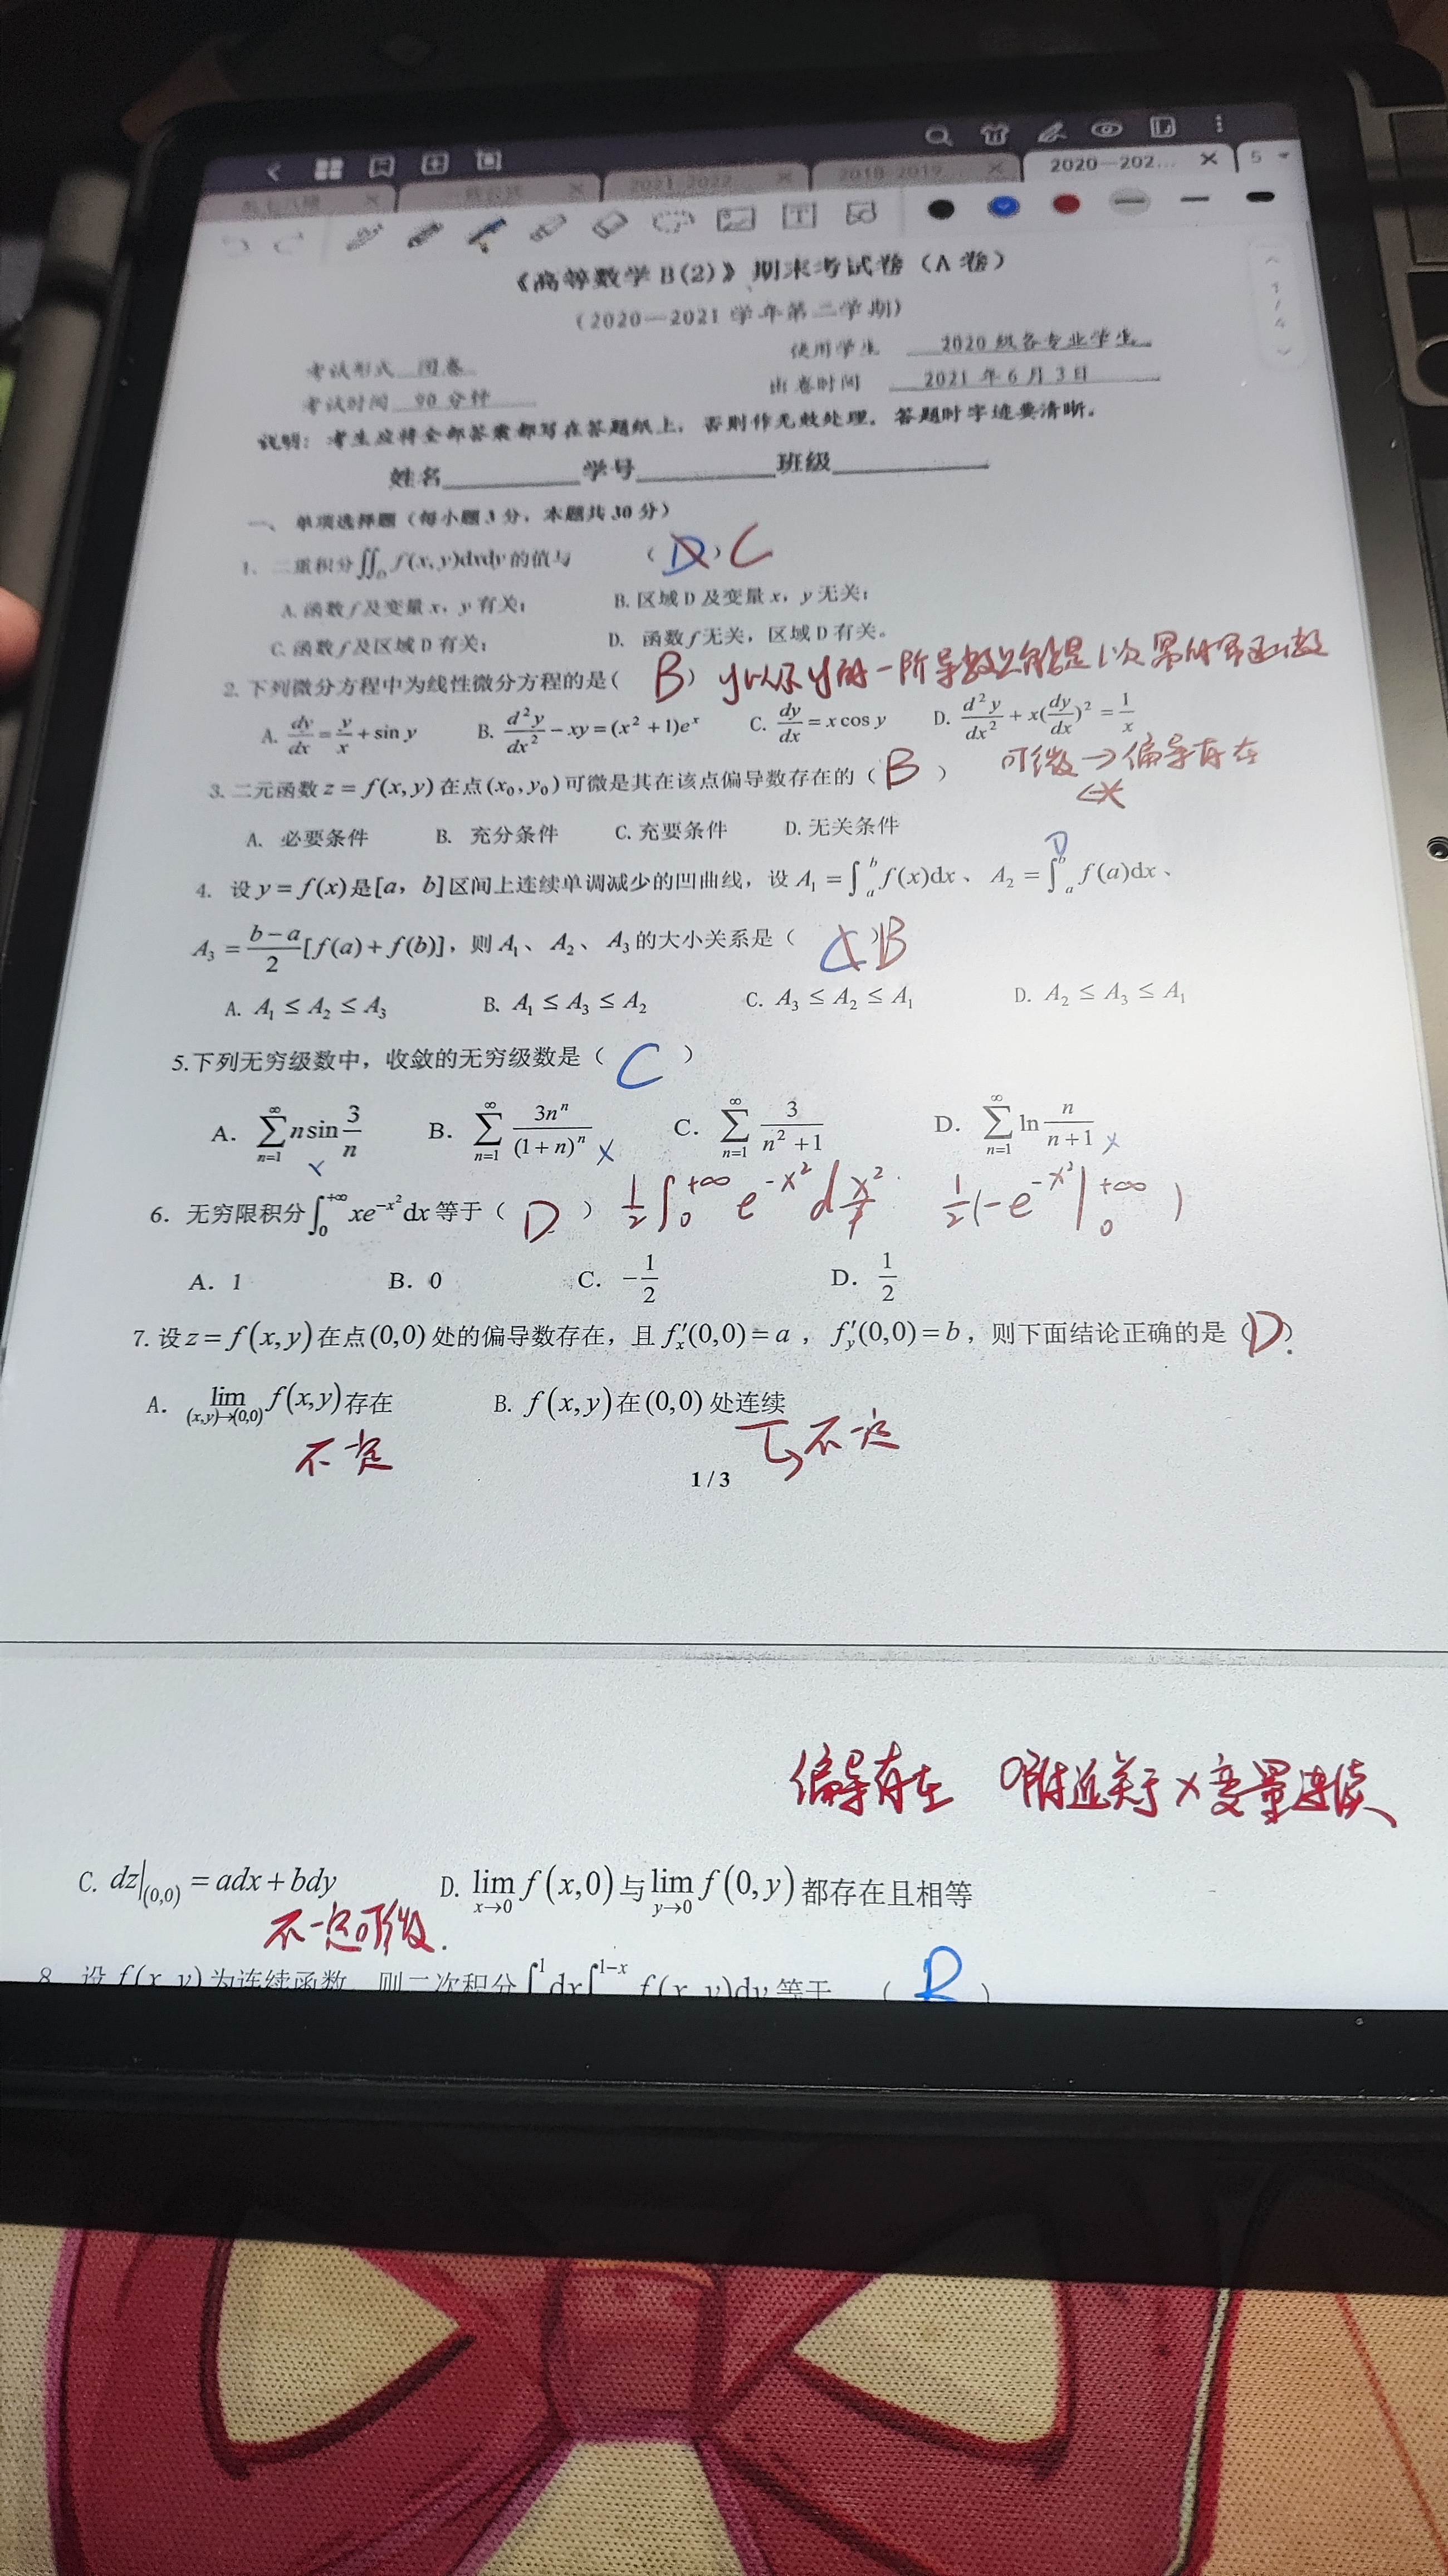 2021-2022
2018-2019
2020—202...
5
《高等数学 B(2)》期末考试卷（A 卷）
（2020—2021 学年第二学期）
考试形式 闭卷 使用学生 2020 级各专业学生
考试时间 90 分钟 出卷时间 2021 年 6 月 3 日
说明：考生应将全部答案都写在答题纸上，否则作无效处理。答题时字迹要清晰。
姓名 学号 班级
一、 单项选择题（每小题 3 分，本题共 30 分）
1. 二重积分∬_D f(x,y)dxdy 的值与 （ D ）C
A. 函数 f 及变量 x，y 有关； B. 区域 D 及变量 x，y 无关；
C. 函数 f 及区域 D 有关； D. 函数 f 无关，区域 D 有关。
2. 下列微分方程中为线性微分方程的是（ B ） y以及y的一阶导数只能是1次幂的幂函数
A. dy/dx = y/x + sin y B. d²y/dx² − xy = (x² + 1)e^x C. dy/dx = x cos y D. d²y/dx² + x(dy/dx)² = 1/x
3. 二元函数 z = f(x, y) 在点 (x₀, y₀) 可微是其在该点偏导数存在的（ B ） 可微→偏导存在
A. 必要条件 B. 充分条件 C. 充要条件 D. 无关条件
4. 设 y = f(x) 是 [a，b] 区间上连续单调减少的凹曲线，设 A₁ = ∫_a^b f(x)dx、 A₂ = ∫_a^b f(a)dx、
A₃ = (b−a)/2 [f(a) + f(b)]，则 A₁、A₂、A₃ 的大小关系是（ ）B
A. A₁ ≤ A₂ ≤ A₃ B. A₁ ≤ A₃ ≤ A₂ C. A₃ ≤ A₂ ≤ A₁ D. A₂ ≤ A₃ ≤ A₁
5.下列无穷级数中，收敛的无穷级数是（ C ）
A. ∑_{n=1}^∞ n sin 3/n × B. ∑_{n=1}^∞ 3n^n/(1+n)^n × C. ∑_{n=1}^∞ 3/(n²+1) D. ∑_{n=1}^∞ ln n/(n+1) ×
6. 无穷限积分 ∫_0^{+∞} xe^{−x²}dx 等于（ D ） 1/2 ∫_0^{+∞} e^{−x²} dx² 1/2(−e^{−x²}|_0^{+∞} )
A. 1 B. 0 C. −1/2 D. 1/2
7. 设 z = f(x, y) 在点 (0,0) 处的偏导数存在，且 f′_x(0,0) = a ， f′_y(0,0) = b，则下面结论正确的是（D）
A. lim_{(x,y)→(0,0)} f(x,y) 存在 B. f(x,y) 在 (0,0) 处连续
不一定 不一定
1 / 3
偏导存在 0附近关于x变量连续
C. dz|_(0,0) = adx + bdy D. lim_{x→0} f(x,0) 与 lim_{y→0} f(0,y) 都存在且相等
不一定可微.
8. 设 f(x, y) 为连续函数，则二次积分 ∫^1 dx ∫^{1−x} f(x, y)dy 等于 （ B ）